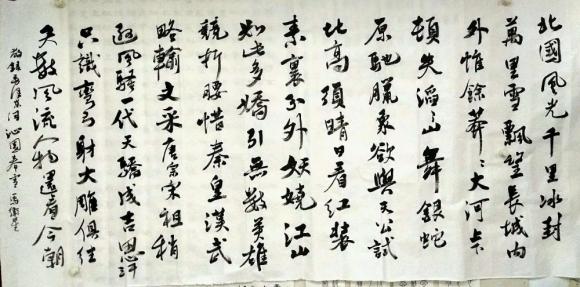 北國風光千里冰封
萬里雪飄望長城內
外惟餘莽〻大河上下
頓失滔〻山舞銀蛇
原馳臘象欲與天公試
比高須晴日看紅裝
素裹分外妖嬈江山
如此多嬌引無數英雄
競折腰惜秦皇漢武
略輸文采唐宗宋祖稍
遜風騷一代天驕成吉思汗
只識彎弓射大雕俱往
矣數風流人物還看今朝
敬錄毛澤東詞 沁園春雪